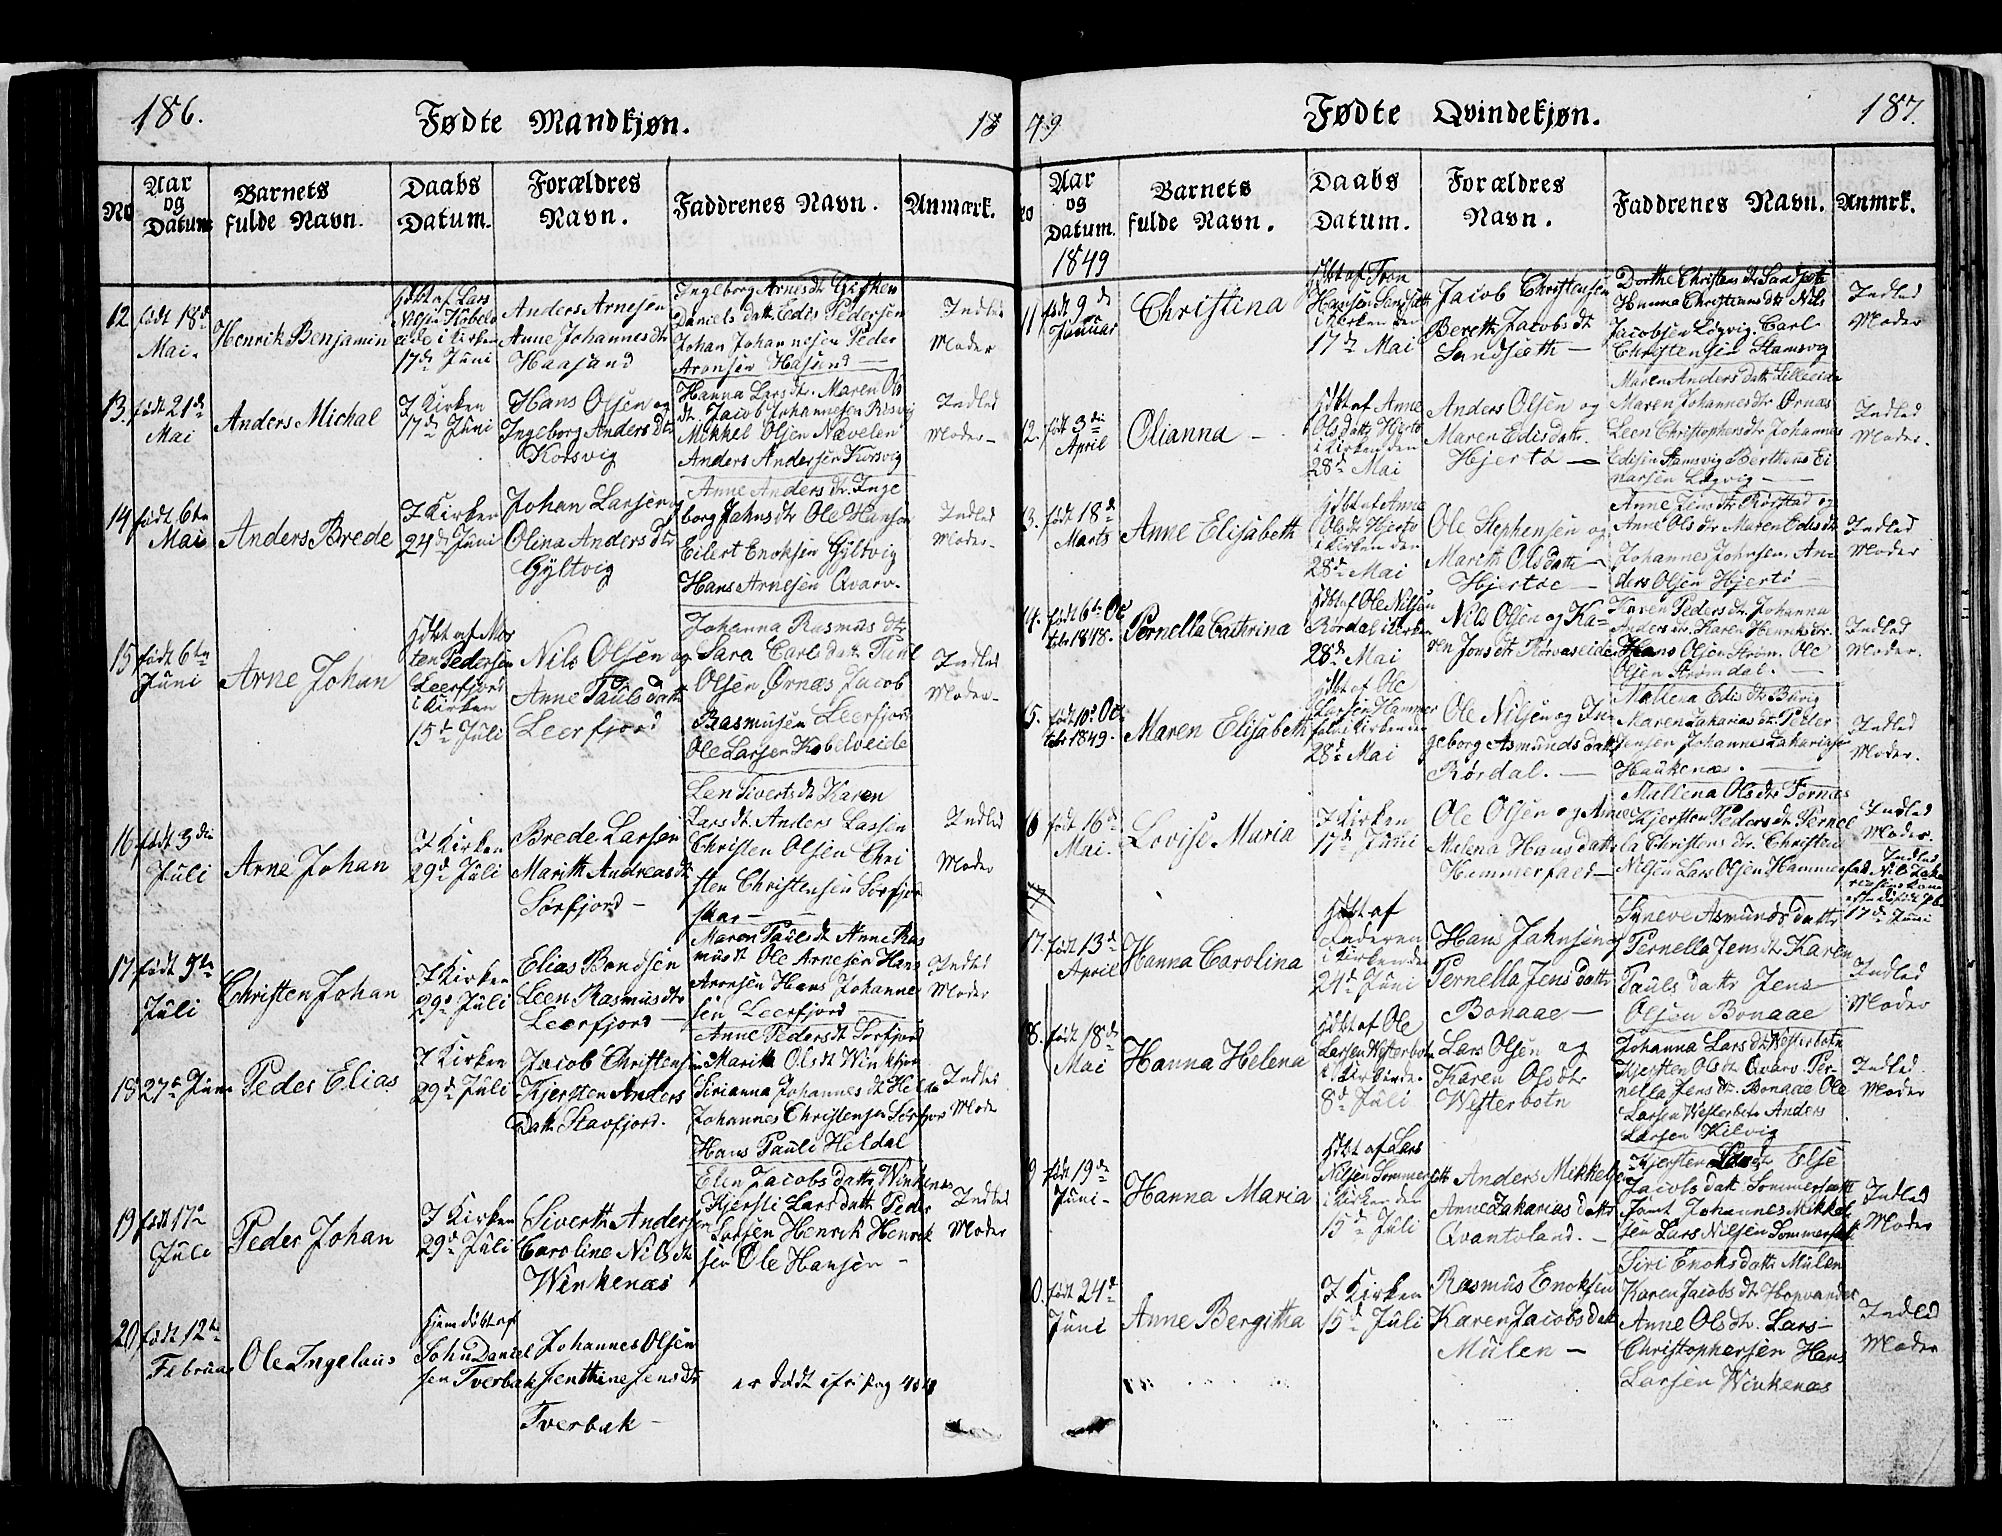 186.
Fødte Mandkjøn.
18
No
Aar
og
Datum
Barnets
fulde Navn.
Daabs
Datum.
Forældres
Navn.
Faddrenes Navn.
Anmærk.
12
født 18de
Mai.
Henrik Benjamin
hdbt af Lars
i Kirken
17de Juni
Anders Arnesen
Anne Johannesdtr
Haasand
Ingeborg Arnesdtr
Daniels datt. Edis Pedersen
Johan Johannesen Peder
Aronsen Hasund
Indled
Moder
13.
født 21de
Mai
Anders Michal
I Kirken
17de Juni
Hans Olsen og
Ingeborg Andersdtr
Korsvig
Hanna Larsdtr. Maren Ols
dtr. Jacob Johannesen
Mikkel Olsen Nævelen
Anders Andersen Korsvig
Indled
Moder
14
født 6te
Mai
Anders Brede
I Kirken
24de Juni
Johan Larsen og
Olina Andersdtr
Gyltvig
Anne Andersdtr. Inge
borg Jahnsdtr Ole Hansen
Eilert Enoksen Gyltvig
Hans Arnesen Qvarv
Indled
Moder
15
født 6te
Juni
Arne Johan
hdbt af Mor
ten Pedersen
Leerfjord
i Kirken
15de Juli
Nils Olsen og
Anne Pauls datt
Leerfjord
Johanna Rasmus dtr
Sara Carls datt. Paul
Olsen Ørnæs Jacob
Rasmusen Leerfjord
Ole Larsen Kobelveide
Indled
Moder
16
født 3die
Juli
Arne Johan
I Kirken
29de Juli
Brede Larsen
Marith Andreasdtr
Sørfjord
Len Sivertsdtr Karen
Larsdtr. Anders Lassen
Christen Olsen Chri
sten Christensen Sørfjor
Indled
Moder
17
født
Juli
Christen Johan
I Kirken
29de Juli
Elias Bendsen
Leen Rasmusdtr
Leerfjord
Maren Paulsdtr Anne Ras
musdt Ole Arnesen Hans
Aronsen Hans Johanne
sen Leerfjord
Indled
Moder
18
27de Juni
Peder Elias
I Kirken
29de Juli
Jacob Christensen
Kjersten Anders
Datt. Stavfjord.
Anne Pedersdtr Sørfjord
Marith Olsdt
Sirianna Johannesdt Heldal
Johannes Christensen Sørfjor
Hans Pauli Heldal
Indled
Mode
19
født 17de
Juli
Peder Johan
I Kirken
29de Juli
Siverth Andersen
Caroline Nilsdtr
Winkenæs
Elen Jacobs datt. Winkenæs
Kjersti Lars datt. Peder
Larsen Henrik Henrik
sen Ole Hansen
Indled
Moder
20
født 12te
Februar
Ole Ingelaus
hjemdøbt af
John Daniel
sen Tverbak
Johannes Olsen
Tverbak
er dødt
49
Fødte Qvindekjøn.
187.
No
Aar
og
Datum.
1849
Barnets
fulde Navn.
Daabs
Datum.
Forældres
Navn.
Faddrenes Navn.
Anmrk.
11
født 9de
Januar
Christina
hdbt af
Hansen Sandsæth
i Kirken den
17de Mai
Jacob Christensen
Bereth Jacobsdt
Sandsæth
Dorthe Christens dtr Sandsæth
Hanna Christiansdtr Nils
Jacobsen Løgvig. Carl
Christensen Stamsvig
Indled
Moder
12.
født 3die
April
Olianna
hdbt af Anne
Ols datt. Hjertø
i Kirken den
28de Mai
Anders Olsen og
Maren Edisdatt.
Hjertø
Maren Anders datt. Lilleeide
Maren Johannesdtr Ørnæs
Leen Christophersdtr Johannes
Edisen Stamsvig Berthens Ei
narsen Løgvig
Indled
Moder.
13.
født 18de
Marts
Anne Elisabeth
hdbt af Anne
Olsdt Hjertø
i Kirken den
28de Mai
Ole Stephensen og
Marith Olsdatt
Hjertøe
Anne Jensdtr Rørstad og
Anne Olsdtr Maren Edisdtr
Johannes Johnsen. An
ders Olsen Hjertø
Indled
Moder
14.
født 6te Oc
tobr 1848.
Pernella Cathrina
hdbt af Ole Nilsen
Rørdal i Kirken
28de Mai
Nils Olsen og Ka
ren Jensdtr Rørvaseide
Karen Pedersdtr. Johanna
Andersdtr. Karen Henriksdtr.
Hans Olsen Strøm. Ole
Olsen Strømdal.
Indled
Moder.
15.
født 10de Oc
tobr 1849.
Maren Elisabeth
hdbt af Ole
Larsen Hammer
fald i Kirken den
28de Mai
Ole Nilsen og In
geborg Asmunds datt
Rørdal.
Mallena Edisdtr Børvig
Maren Zakariasdtr. Peder
Jensen Johannes Zakariasen
Haukenæs.
Indled
Moder.
16
født 16de
Mai.
Lovise Maria
I Kirken
17de Juni
Ole Olsen og Anne
Melena Hans datt
Hammerfald
Mallena Olsdtr Fornæs
Kjersten Pedersdtr Pernel
la Christensdtr. Christen
Nilsen Lars Olsen Hammer
fald
Indled
Moder.
17de Juni
17.
født 13de
April
Hanna Carolina
hdbt af
i Kirken de
24de Juni
Hans Jahnsen og
Pernella Jens datt
Bonaae
Syneve Asmundsdatt
Pernella Jensdtr Karen
Pauls datt. Jens
Olsen Bonaae
Indled
Moder
18.
født 18de
Mai
Hanna Helena
hdbt af Ole
Larsen Westerbotn
i Kirken de
8de Juli
Lars Olsen og
Karen Olsdtr
Westerbotn
Johanna Larsdtr Westerbotn
Kjersten Olsdt Qvarv. Per
nella Jensdtr. Bonaae Ole
Larsen Westerbotn Anders
Larsen Kilvig
Indled
Moder
19
født 19de
Juni
Hanna Maria
hdbt af Lars
Nilsen Sommerseth
i Kirken den
15de Juli
Anders Mikkelse
Anne Zakarias datt.
Qvantoland.
Kjersten Larsdtr Else
Jacobs datt. Sommersæth
samt Johannes Mikkel
sen Lars Nilsen Sommerset.
Indled
Moder
20.
født 24de
Juni
Anne Bergitta
I Kirken
15de Juli
Rasmus Enoksen
Karen Jacobsdatt
Mülen
Siri Enoksdatt. Mülen
Karen Jacobsdtr Hopvandet
Anne Olsdtr. Lars
Christophersen Hans
Larsen Winkenæs
Indled
Moder